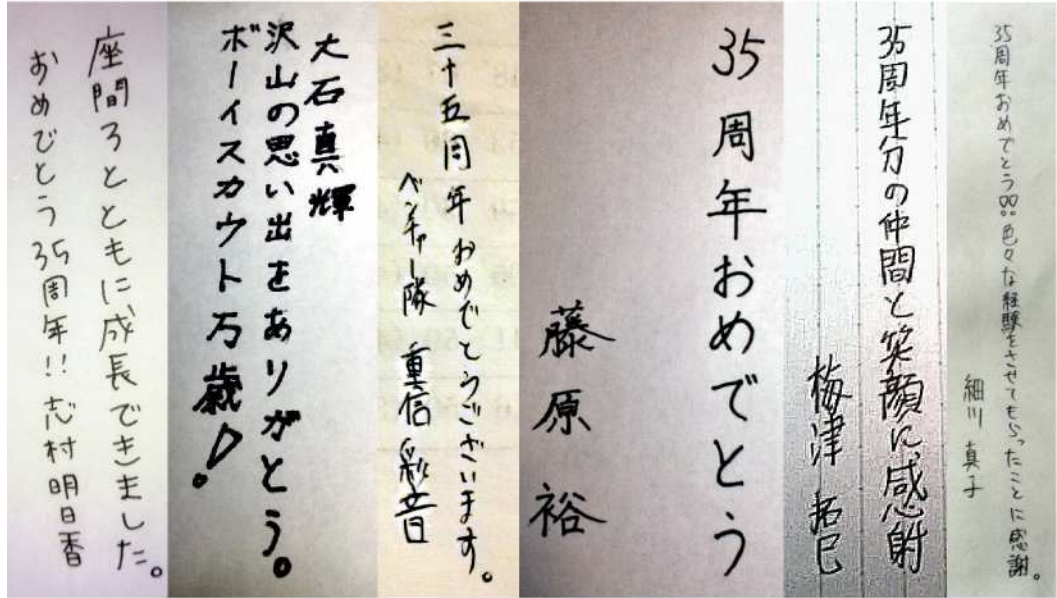 35周年おめでとう!!色々な経験をさせてもらったことに感謝。
細川 真子
35周年分の仲間と笑顔に感射
梅津 拓巳
35周年おめでとう
藤原裕
三十五周年おめでとうございます。
ベンチャー隊 重信彩音
大石真輝
沢山の思い出をありがとう。
ボーイスカウト万歳!
座間3とともに成長できました。
おめでとう35周年!!志村明日香